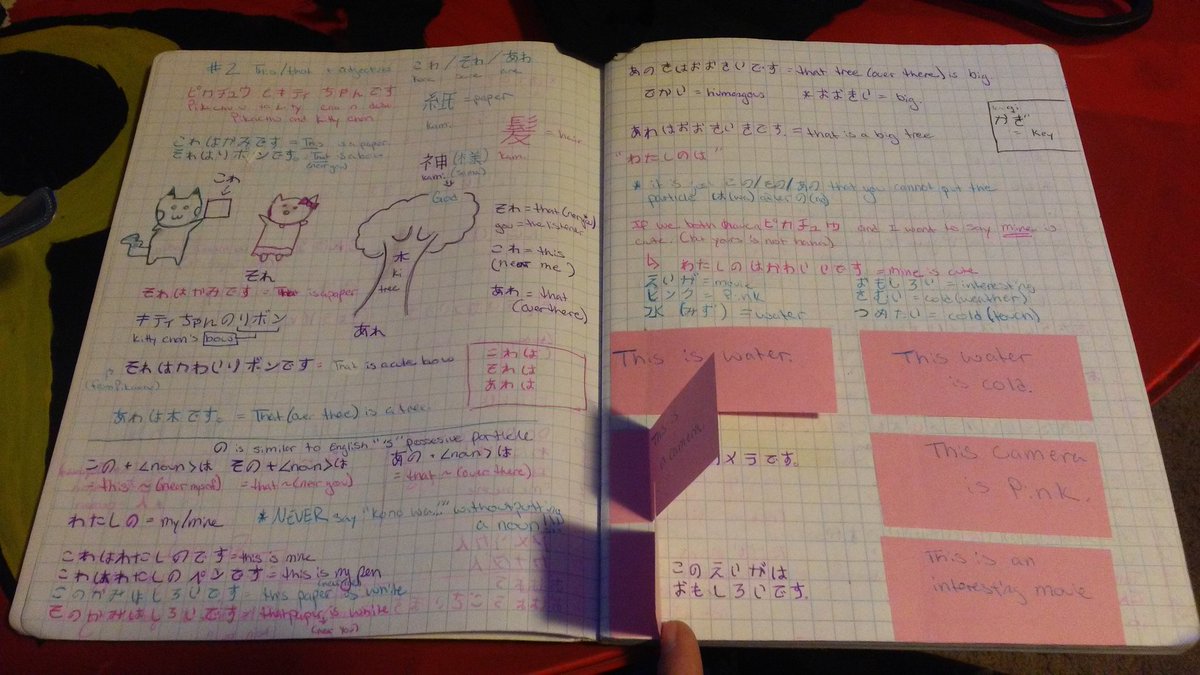 #2 This/that + adjectives
ピカチュウ と キティ ちゃんです
Pikachuu to kitty chan desu
Pikachu and kitty chan
これはかみです = This is a paper
それはリボンです。 = That is a bow
(near you)
これ
それ
それはかみです = That is a paper
キティ ちゃんのリボン
kitty chan's bow
それはかわいいリボンです = That is a cute bow
(from Pikachu)
あれは木です。 = That (over there) is a tree.
これ/それ/あれ
kore sore are
紙 = paper
kami
髪 = hair
kami
神 (様)
kami (sama)
God
木
ki
tree
あれ
それ = that (near you)
you = the listener
これ = this
(near me)
あれ = that
(over there)
これは
それは
あれは
の is similar to English "'s" possesive particle
この + <noun> は その + <noun> は あの + <noun> は
= this ~ (near me) = that ~ (near you) = that ~ (over there)
わたしの = my/mine
* NEVER say "kono wa..." without putting
a noun!!!
これはわたしのです = this is mine
これはわたしのペンです = this is my pen
このかみはしろいです = this paper is white
そのかみはしろいです = that paper is white
(near you)
あのきはおおきいです = that tree (over there) is big.
でかい = humongous * おおきい = big.
かぎ
= key
あれはおおきいきです。 = that is a big tree
"わたしのは"
* it is just この/その/あの that you cannot put the
particle は(wa) after の(no)
If we both have ピカチュウ and I want to say mine is
cute (but yours is not haha)
↳ わたしのはかわいいです = mine is cute
えいが = movie おもしろい = interesting
ピンク = Pink さむい = cold (weather)
水 (みず) = water つめたい = cold (touch)
This is water.
This water
is cold.
This is
a camera
メラです。
This camera
is Pink.
このえいがは
おもしろいです。
This is an
interesting movie